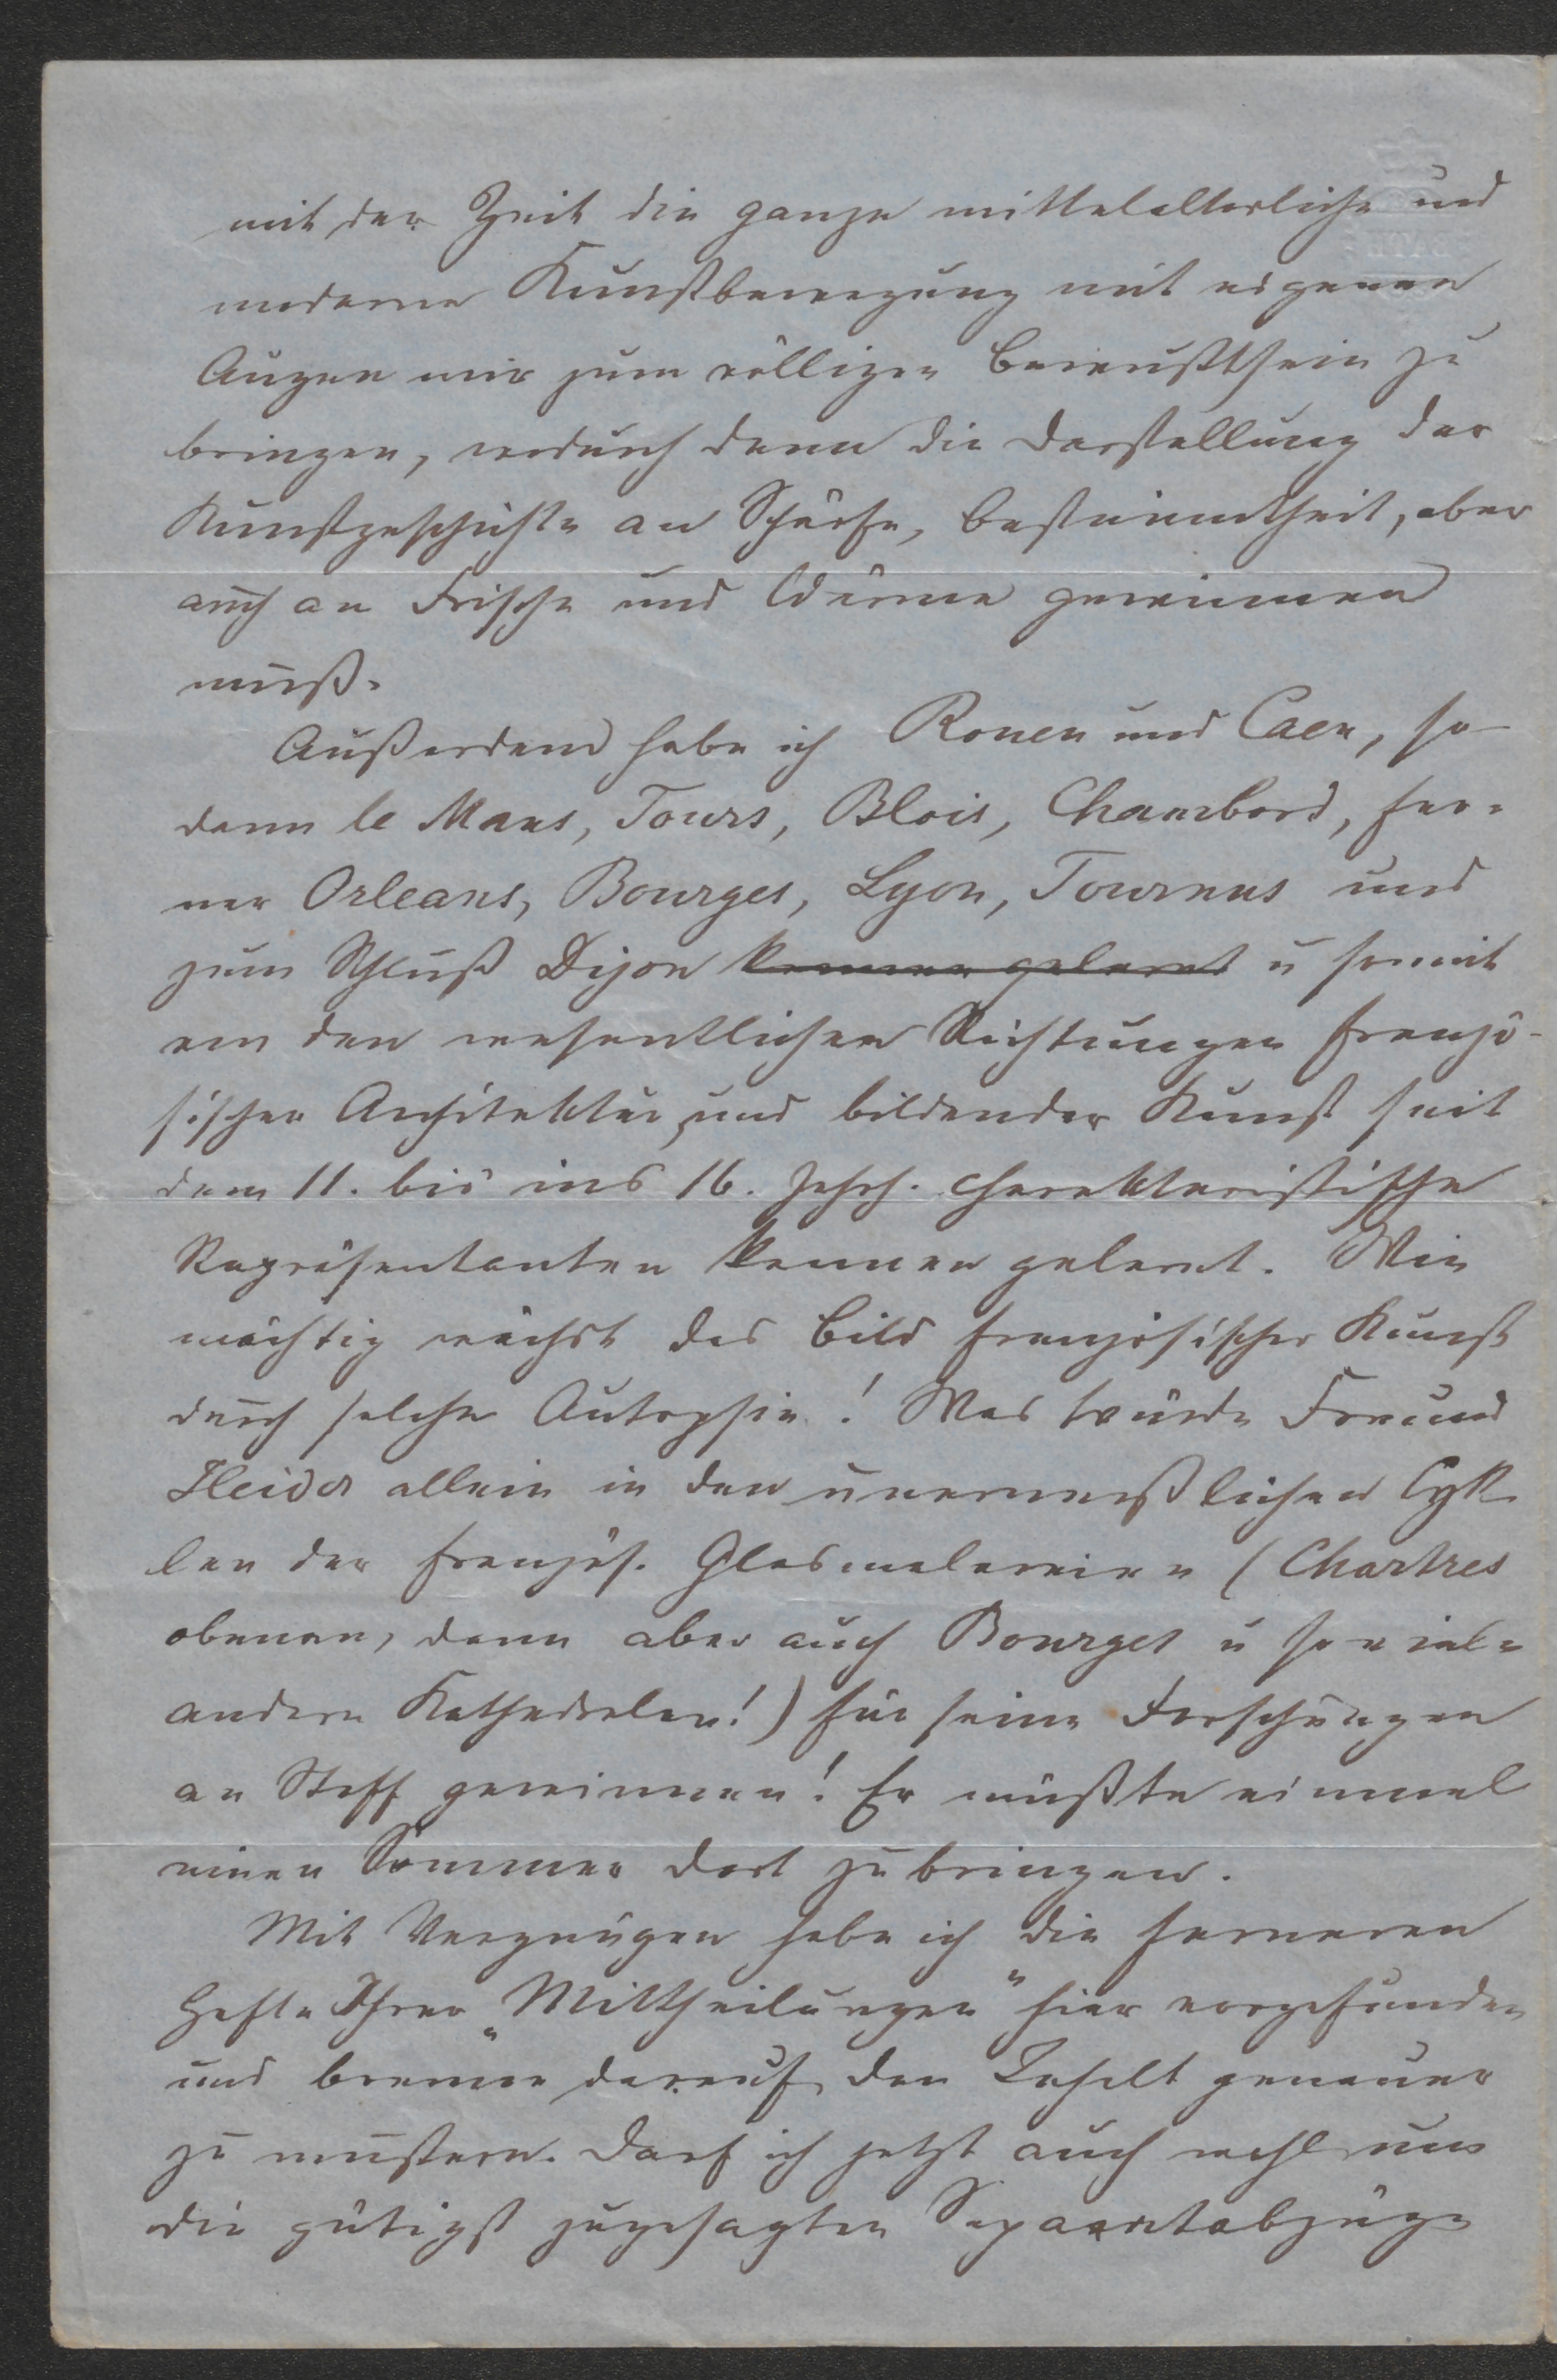 mit der Zeit die ganze mittelalterliche und
moderne Kunstbewegung mit eigenen
Augen mir zum völligen Bewußtsein zu
bringen, wodurch denn die Darstellung der
Kunstgeschichte an Schärfe, Bestimmtheit, aber
auch an Frische und Wärme gewinnen
muß.
Außerdem habe ich Rouen und Caen, so-
dann le Mans, Tours, Blois, Chambord, fer-
ner Orleans, Bourges, Lyon, Tournus und
zum Schluß Dijon kennen gelernt u somit
von den wesentlichen Richtungen franzö-
sischer Architektur und bildender Kunst seit
dem 11. bis ins 16. Jahrh. charakteristische
Repräsentanten kennen gelernt. Wie
mächtig wächst das Bild französischer Kunst
durch solche Autopsie! Was würde Freund
Heider allein in den unermeßlichen Cyk-
len der französ. Glasmalereien (Chartres
obenan, dann aber auch Bourges u so viele
andere Kathedralen!) für seine Forschungen
an Stoff gewinnen! Er müßte einmal
einen Sommer dort zubringen.
Mit Vergnügen habe ich die ferneren
Hefte Ihrer „Mittheilungen" hier vorgefunden
und brenne darauf, den Inhalt genauer
zu mustern. Darf ich jetzt auch wohl um
die gütigst zugesagten Separatabzüge